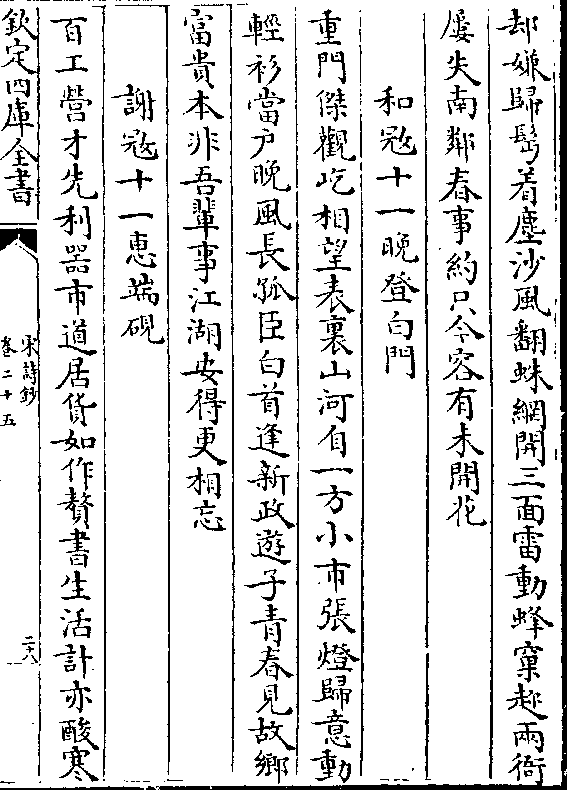 却嫌歸髩着塵沙風翻蛛網開三面雷動蜂窠趂兩衙
屢失南鄰春事約只今容有未開花
和㓂十一晚登白門
重門傑觀屹相望表裏山河自一方小市張燈歸意動
輕衫當户晚風長孤臣白首逢新政遊子青春見故鄉
富貴本非吾輩事江湖安得更相忘
謝㓂十一惠端硯
百工營才先利器市道居貨如作贅書生活計亦酸寒
欽定四庫全書
宋詩鈔
卷二十五
二六